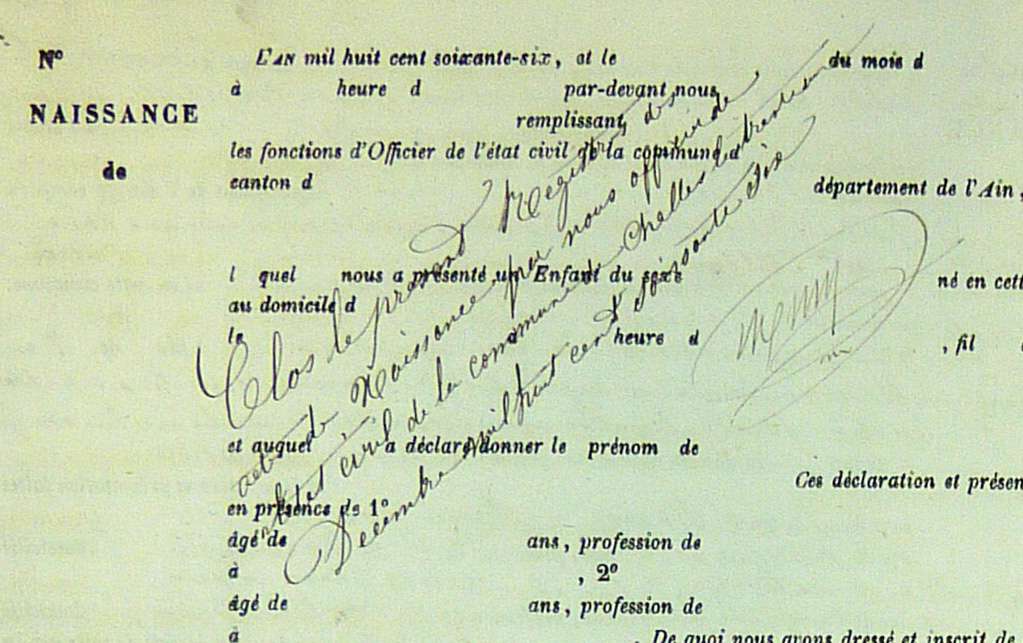 N° L'AN mil huit cent soixante-six, et le du mois d
à heure d par-devant nous
NAISSANCE
remplissant
les fonctions d'Officier de l'état civil de la commune d
de
canton d
département de l'Ain,
l quel nous a présenté un Enfant du sexe né en cett
au domicile d
le heure d , fil
et auquel a déclaré donner le prénom de
Ces déclaration et présen
en présence de 1°
âgé de ans, profession de
à , 2°
âgé de ans, profession de
à . De quoi nous avons dressé et inscrit de
Clos le présent Registre des
actes de Naissance par nous officier de
l'état civil de la commune de Challes le trente un
Décembre mil huit cent soixante six